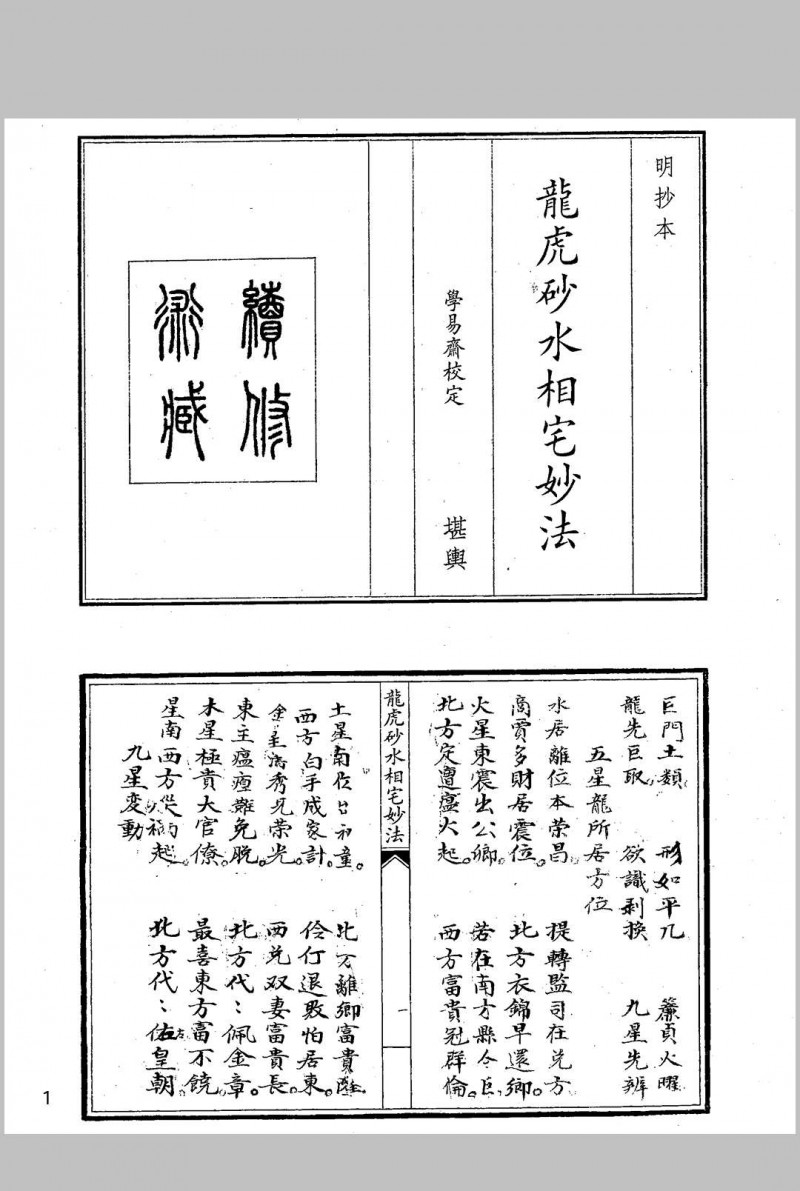 明抄本
龍虎砂水相宅妙法
學易齋校定 堪輿
續修
術藏
巨門土類 形如平几 簾貞火曜
龍先巨取 欲識剥換 九星先辨
五星龍所居方位
水居離位本荣昌 提轉監司在兑方
商賈多財居震位 北方衣錦早还鄉
火星東震出公卿 若在南方縣令臣
北方定遭瘟火起 西方富貴冠群倫
龍虎砂水相宅妙法
一
土星南 童 北方離鄉富貴
西方白手成家計 伶仃退敗怕居東
金 秀見荣光 西兑双妻富貴長
東主瘟 難免脱 北方代〻佩金章
木星極貴大官僚 最喜東方富不饒
星南西方災禍起 北方代〻佐皇朝
九星变動
1